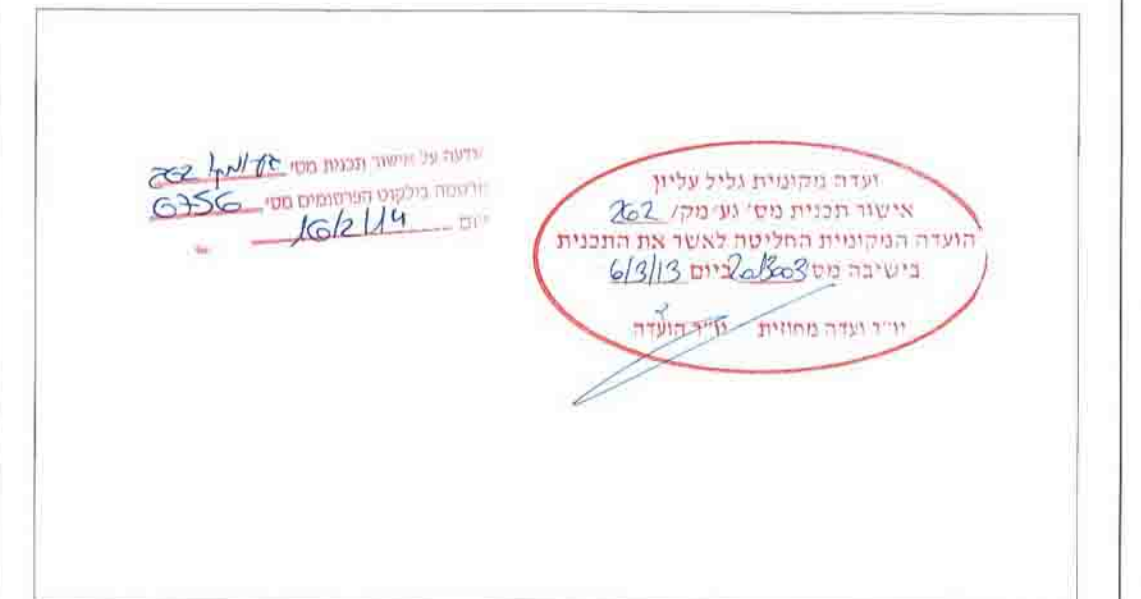 ועדה מקומית גליל עליון
אישור תכנית מס׳ גע/מק/ 262
הועדה המקומית החליטה לאשר את התכנית
בישיבה מס׳ ביום 6/3/13
יו״ר ועדה מחוזית יו״ר הועדה
ודעה על אישור תכנית מס׳ גע/מק/ 262
ורסמה בילקוט הפרסומים מס׳ 6756
יום 16/2/14